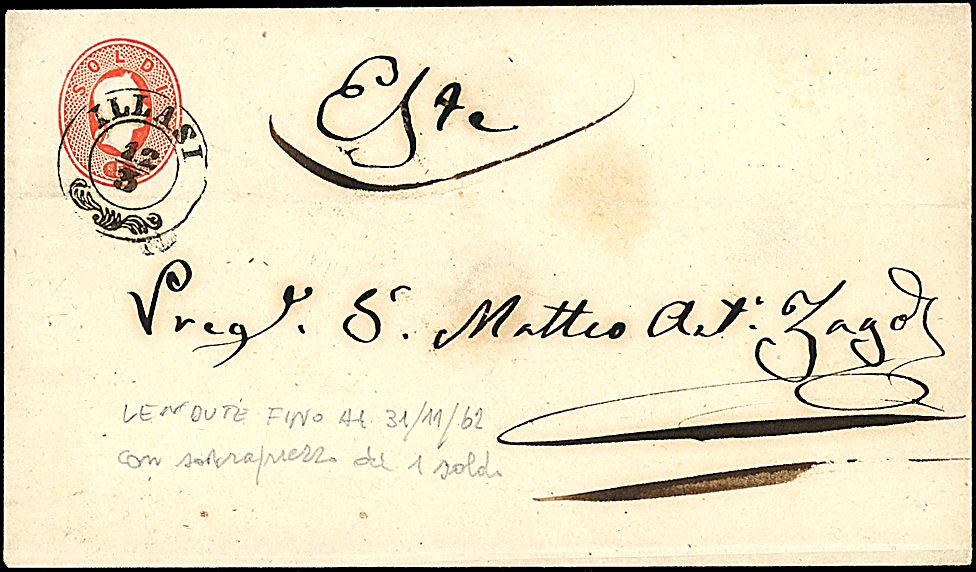 SOLDI
ILLASI
12
3
Este
Preg.r S.r Matteo Ant.o Zago
VENDUTE FINO AL 31/11/62
con sovraprezzo di 1 soldo